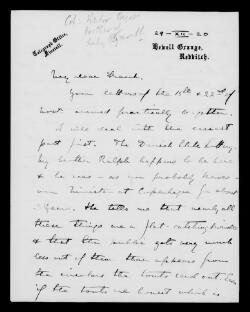 Telegraph Office,
Finstall.
29 - XII - 20
Hewell Grange,
Redditch.
My dear Frank.
Your letters of the 15th & 22nd of
Novr arrived practically together.
I will deal with the
part first. The Danish State Lottery.
My brother Ralph happens to be here
& he was - as you probably know -
our Minister at Copenhagen for about
years. He tells me that nearly all
these things are a flat-catching
& that the public gets very much
less out of them than appears from
the circulars the touts send out. Even
if the touts are honest which is